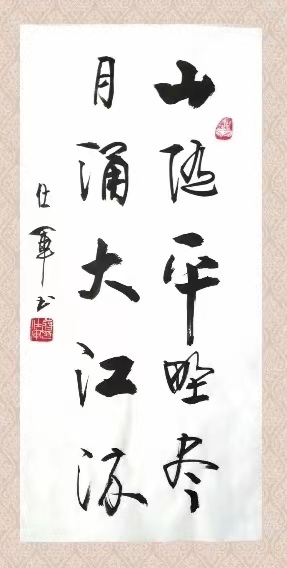 山随平野尽
月涌大江流
仕軍书